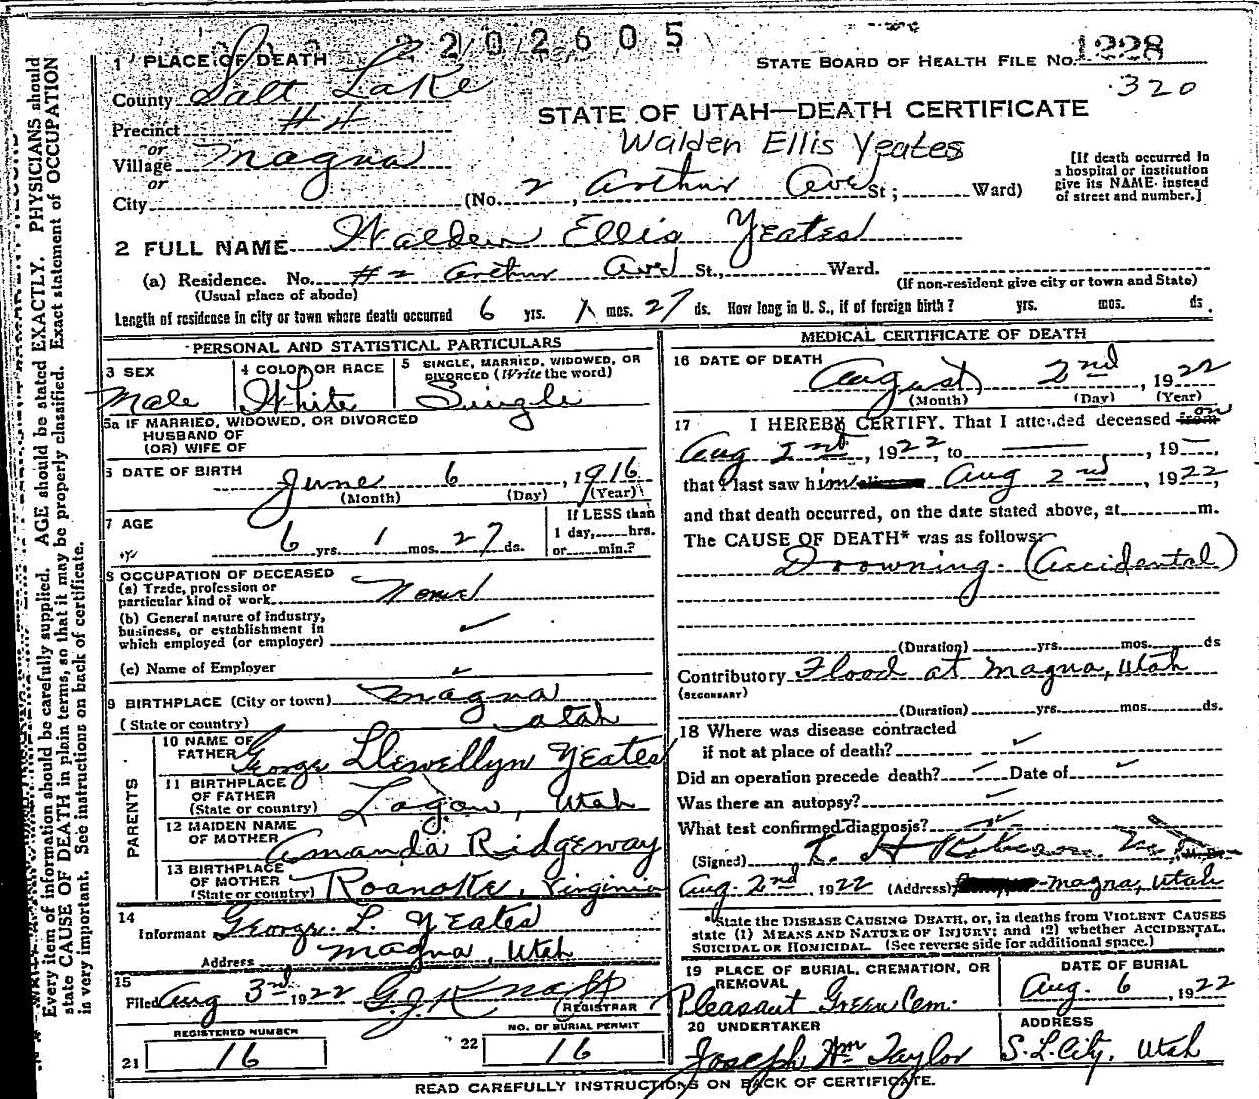 2202605
STATE BOARD OF HEALTH FILE No. 1228
320
1 PLACE OF DEATH
County Salt Lake
Precinct #4
or
Village Magna
or
City
STATE OF UTAH—DEATH CERTIFICATE
Walden Ellis Yeates
(No. 2, Arthur Ave St; Ward)
[If death occurred in a hospital or institution give its NAME instead of street and number.]
2 FULL NAME Walden Ellis Yeates
(a) Residence. No. #2 Arthur Ave St., Ward.
(Usual place of abode)
(If non-resident give city or town and State)
Length of residence in city or town where death occurred 6 yrs. 1 mos. 27 ds. How long in U. S., if of foreign birth? yrs. mos. ds.
PERSONAL AND STATISTICAL PARTICULARS
3 SEX
Male
4 COLOR OR RACE
White
5 SINGLE, MARRIED, WIDOWED, OR DIVORCED (Write the word)
Single
5a IF MARRIED, WIDOWED, OR DIVORCED
HUSBAND OF
(OR) WIFE OF
6 DATE OF BIRTH
June 6, 1916
(Month) (Day) (Year)
7 AGE
6 yrs. 1 mos. 27 ds.
If LESS than
1 day, hrs.
or min.?
8 OCCUPATION OF DECEASED
(a) Trade, profession or
particular kind of work None
(b) General nature of industry,
business, or establishment in
which employed (or employer)
(c) Name of Employer
9 BIRTHPLACE (City or town) Magna
(State or country) Utah
PARENTS
10 NAME OF
FATHER George Llewellyn Yeates
11 BIRTHPLACE
OF FATHER
(State or country) Logan, Utah
12 MAIDEN NAME
OF MOTHER Amanda Ridgeway
13 BIRTHPLACE
OF MOTHER
(State or country) Roanoke, Virginia
14
Informant George L. Yeates
Address Magna, Utah
15
Filed Aug 3rd 1922 G.J. Knapp
REGISTRAR
REGISTERED NUMBER
21 16
NO. OF BURIAL PERMIT
22 16
MEDICAL CERTIFICATE OF DEATH
16 DATE OF DEATH
August 2nd, 1922
(Month) (Day) (Year)
17 I HEREBY CERTIFY, That I attended deceased from on
Aug 2nd, 1922, to , 19
that I last saw him Aug 2nd, 1922,
and that death occurred, on the date stated above, at m.
The CAUSE OF DEATH* was as follows:
Drowning. (Accidental)
(Duration) yrs. mos. ds
Contributory Flood at Magna, Utah
(SECONDARY)
(Duration) yrs. mos. ds.
18 Where was disease contracted
if not at place of death?
Did an operation precede death? Date of
Was there an autopsy?
What test confirmed diagnosis?
(Signed)
Aug. 2nd, 1922 (Address) Magna, Utah
*State the DISEASE CAUSING DEATH, or, in deaths from VIOLENT CAUSES
state (1) MEANS AND NATURE OF INJURY; and (2) whether ACCIDENTAL,
SUICIDAL OR HOMICIDAL. (See reverse side for additional space.)
19 PLACE OF BURIAL, CREMATION, OR
REMOVAL
Pleasant Green Cem.
DATE OF BURIAL
Aug. 6, 1922
20 UNDERTAKER
Joseph Wm Taylor
ADDRESS
S. L. City, Utah
READ CAREFULLY INSTRUCTIONS ON BACK OF CERTIFICATE.
Every item of information should be carefully supplied. AGE should be stated EXACTLY. PHYSICIANS should
state CAUSE OF DEATH in plain terms, so that it may be properly classified. Exact statement of OCCUPATION
is very important. See instructions on back of certificate.